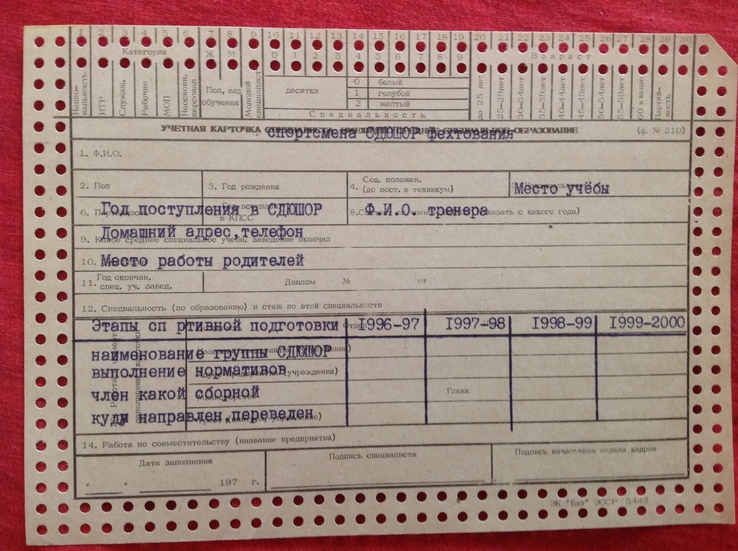 1 2 3 4 5 6 7 8 9 10 11 12 13 14 15 16 17 18 19 20 21 22 23 24 25 26 27 28 29 30
Категория Ж М 0 1 2 3 4 5 6 7 8 9 Возраст
Национальность ИТР Служащ. Рабочие МОП Неосновн. персонал Пол, вид обучения Молодой специалист десятки 0 белый 1 голубой 2 желтый до 25 лет 25-29лет 30-34лет 35-39лет 40-44лет 45-49лет 50-54лет 55-59лет 60 и выше Партийность
Специальность
УЧЕТНАЯ КАРТОЧКА СПЕЦИАЛЬНОЕ ОБРАЗОВАНИЕ (ф. № 210)
спортсмена СДЮШОР фехтования
1. Ф.И.О.
2. Пол 3. Год рождения 4. Соц. положен. (до пост. в техникум) Место учёбы
6. 8. казать с какого года)
в КПСС
Год поступления в СДЮШОР Ф.И.О. тренера
Домашний адрес,телефон
9. Какое среднее специальное учебн. заведение окончил
10. Место работы родителей
11. Год окончан. спец. уч. завед. Диплом № от
12. Специальность (по образованию) и стаж по этой специальности
Этапы сп ртивной подготовки I996-97 I997-98 I998-99 I999-2000
наименование группы СДЮШОР
выполнение нормативов
член какой сборной Главк
куди направлен,переведен
14. Работа по совместительству (название предприятия)
Дата заполнения Подпись специалиста Подпись начальника отдела кадров
" " 197 г.
ЭК "Бит" ЭССР 5443